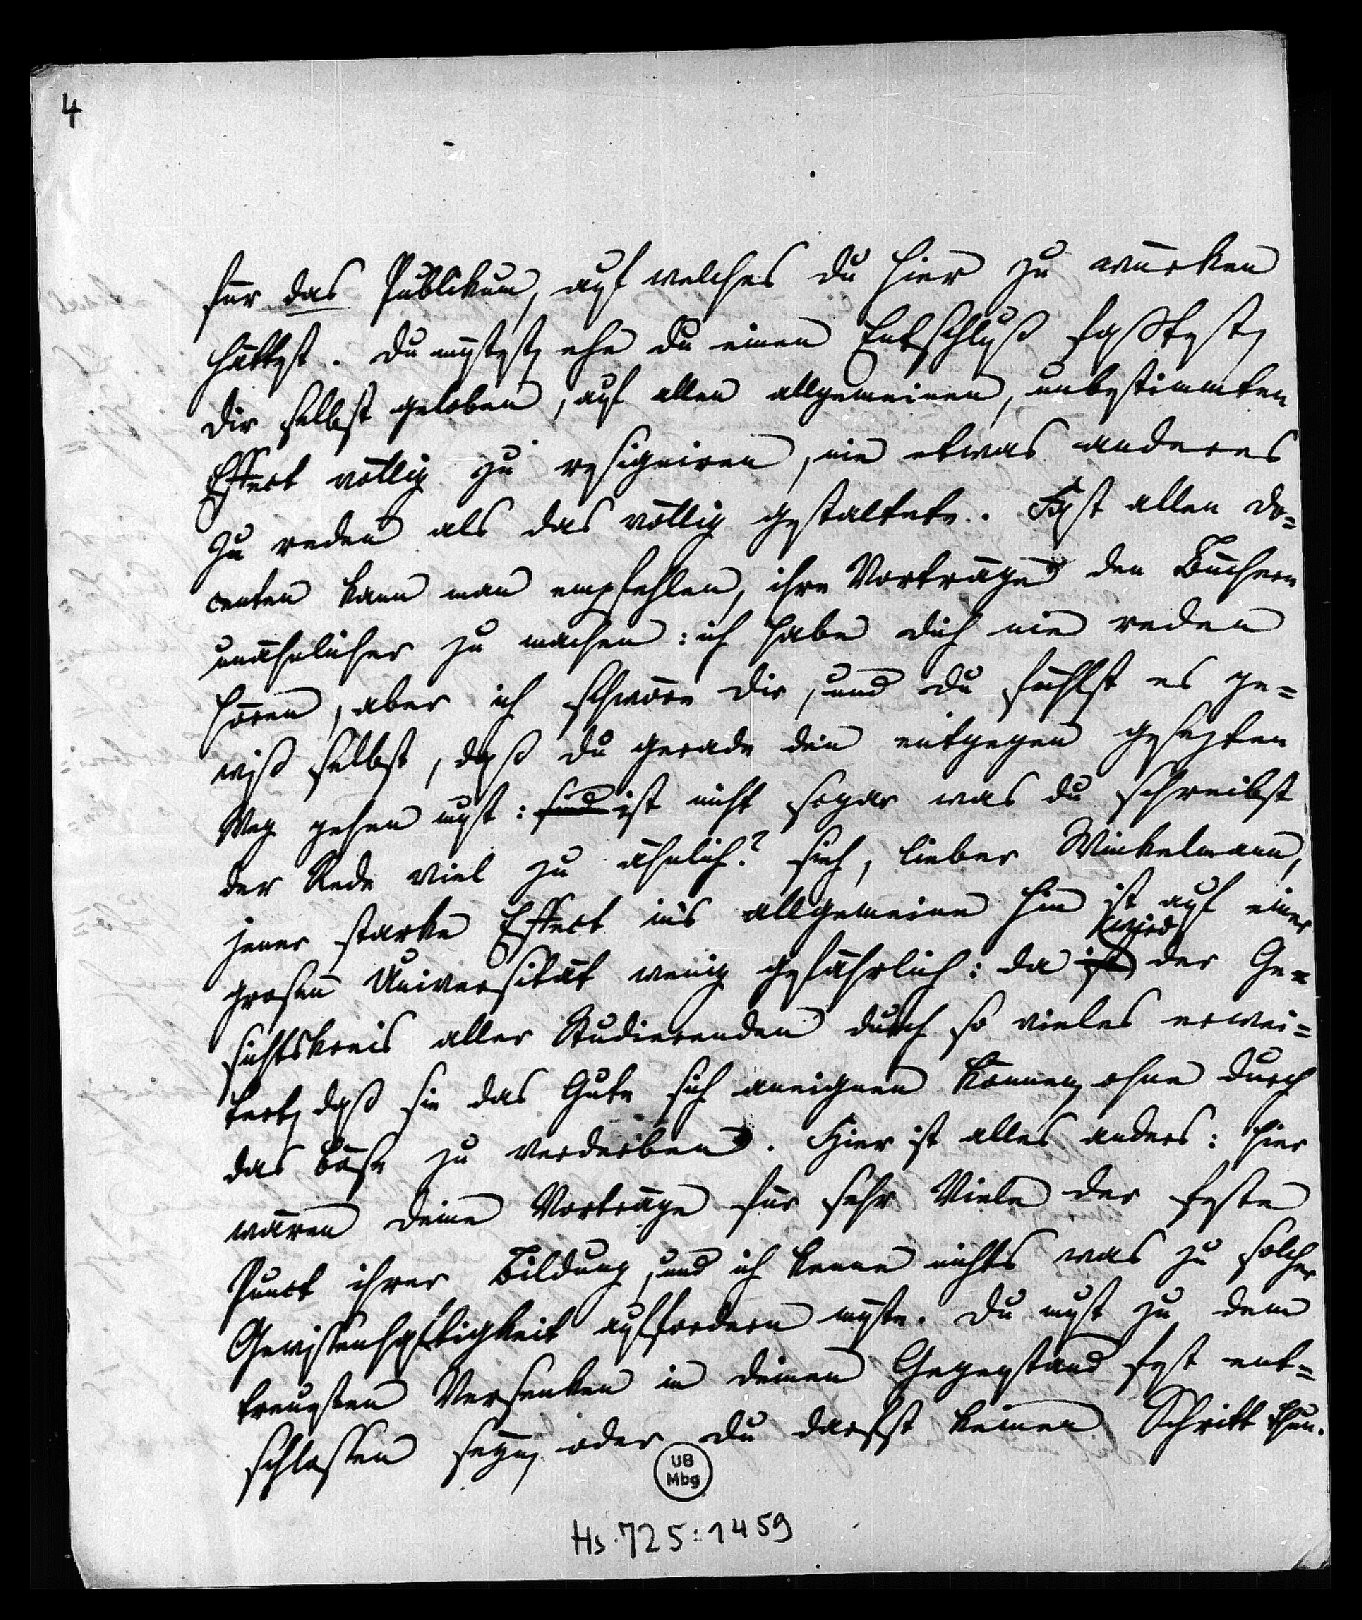 4
für das Publikum, auf welches du hier zu würken
hättest. du müstest, ehe du einen Entschluß faßtest,
dir selbst geloben, auf allen allgemeinen, unbestimmten
Effect völlig zu resigniren, nie etwas anderes
zu reden als das völlig gestaltete. Fast allen do=
centen kann man empfehlen, ihre Vorträge den Büchern
unähnlicher zu machen: ich habe dich nie reden
hören, aber ich schwöre dir, und du fühlst es ge=
wiß selbst, daß du gerade den entgegen gesezten
Weg gehen must: sind ist nicht sogar was du schreibst
der Rede viel zu ähnlich? Sieh, lieber Winkelmann,
jener starke Effect ins allgemeine hin ist auf einer
wird
großen Universität wenig gefährlich: da ist der Ge=
sichtskreis aller Studierenden durch so vieles erwei=
tert, daß sie das Gute sich aneignen können, ohne durch
das böse zu verderben. Hier ist alles anders: hier
wären deine Vorträge für sehr Viele der feste
Punct ihrer Bildung, und ich kenne nichts was zu solcher
Gewissenhaftigkeit auffordern müste. du must zu dem
treusten Versenken in deinen Gegenstand fest ent=
schlossen seyn, oder du darfst keinen Schritt thun.
UB
Mbg
Hs. 725:1459